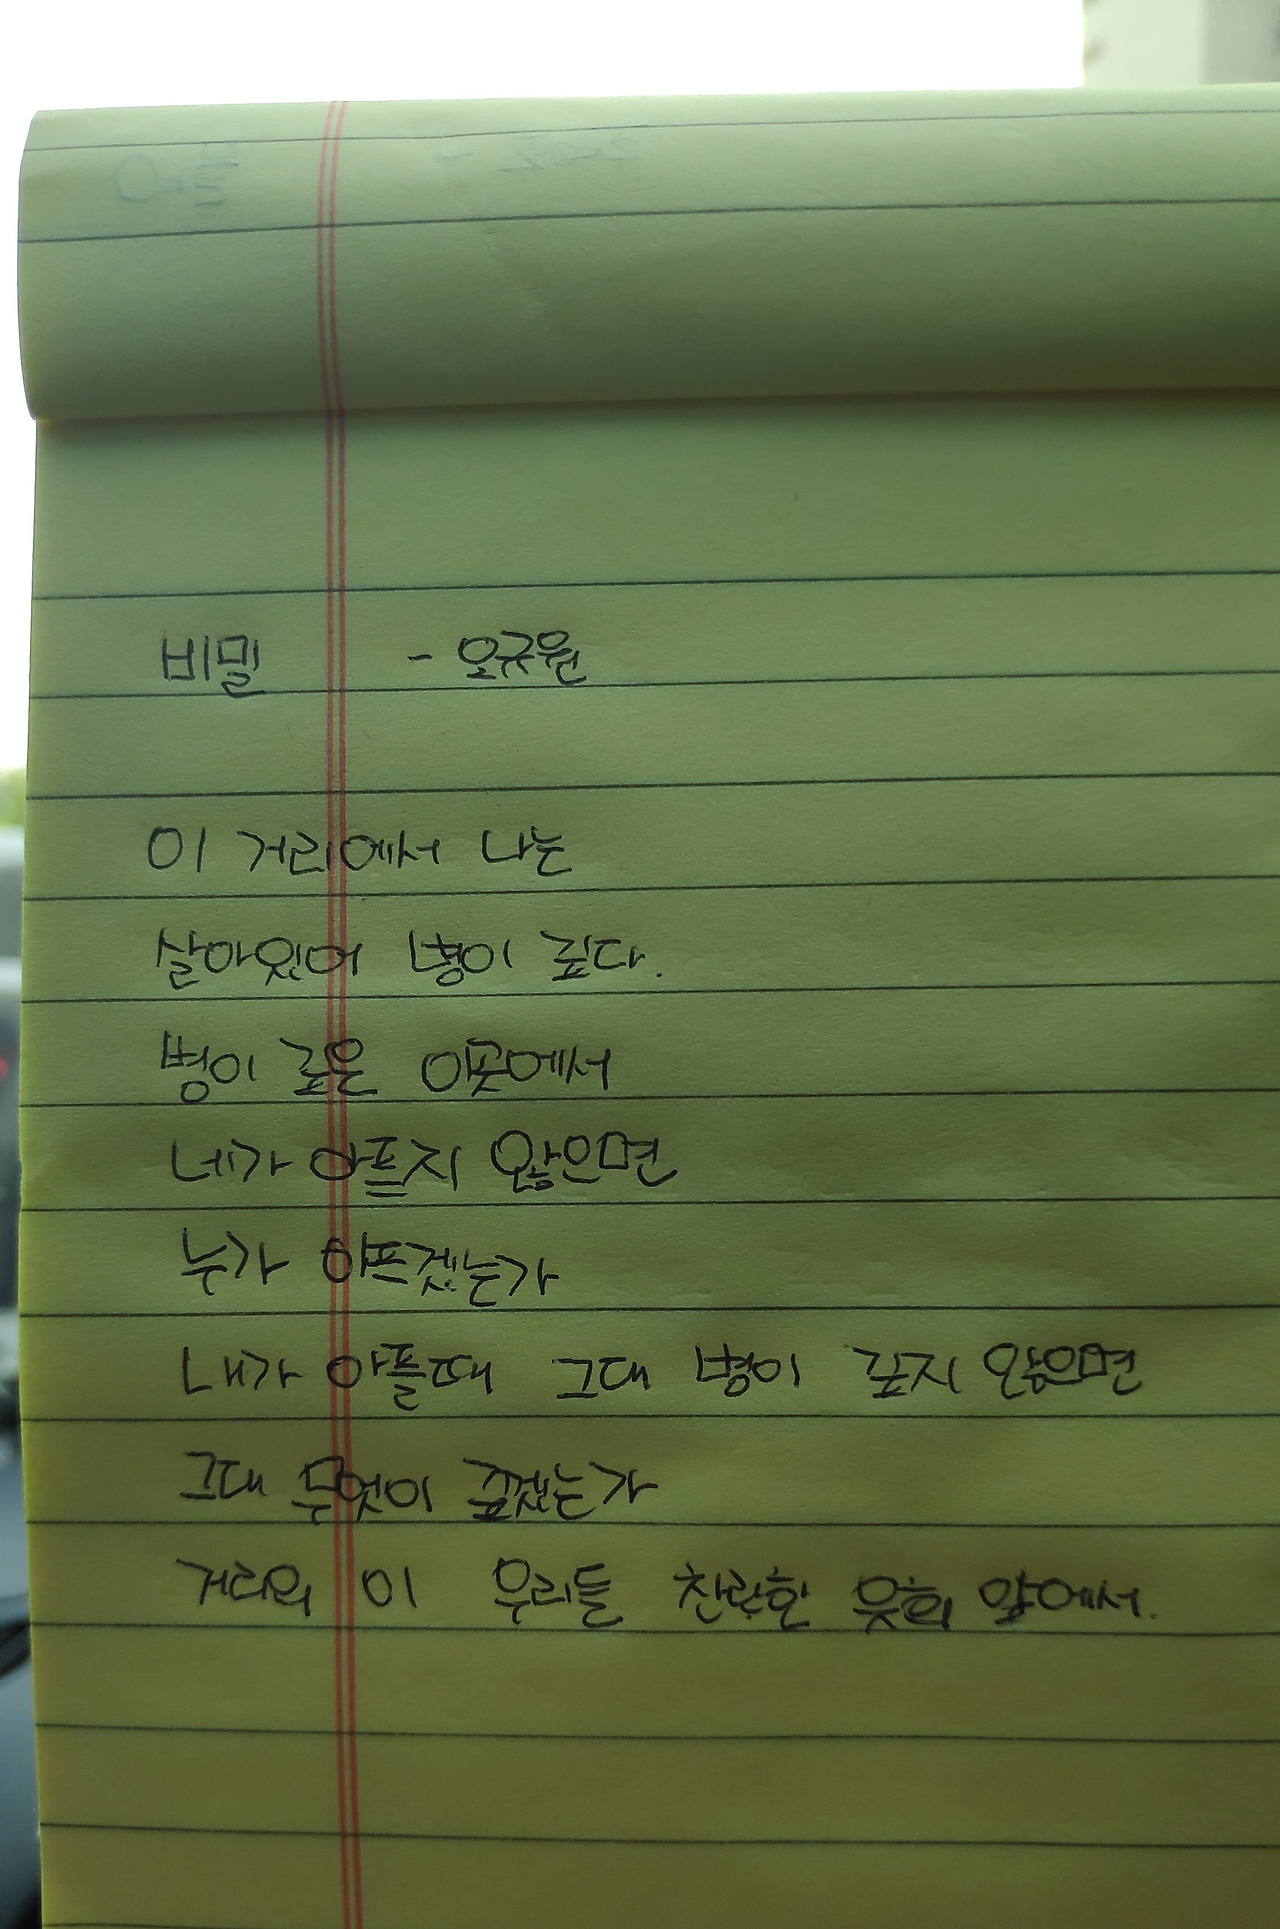 비밀 - 오규원
이 거리에서 나는
살아있어 병이 깊다.
병이 깊은 이곳에서
네가 아프지 않으면
누가 아프겠는가
내가 아플때 그대 병이 깊지 않으면
그대 무엇이 깊겠는가
거리의 이 우리들 찬란한 유희 앞에서.